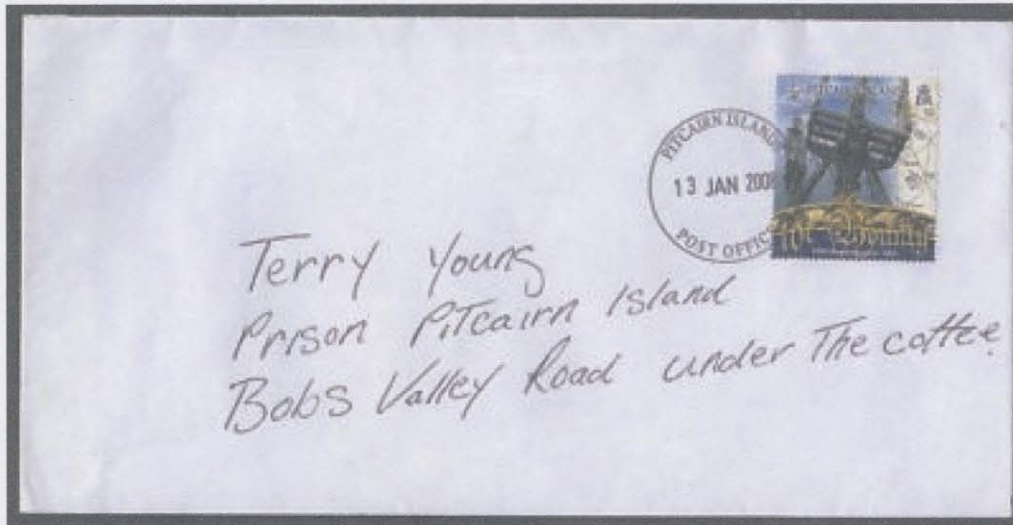 PITCAIRN ISLAND
PITCAIRN ISLAND
13 JAN 2008
POST OFFICE
Terry Young
Prison Pitcairn Island
Bobs Valley Road under The coffee.